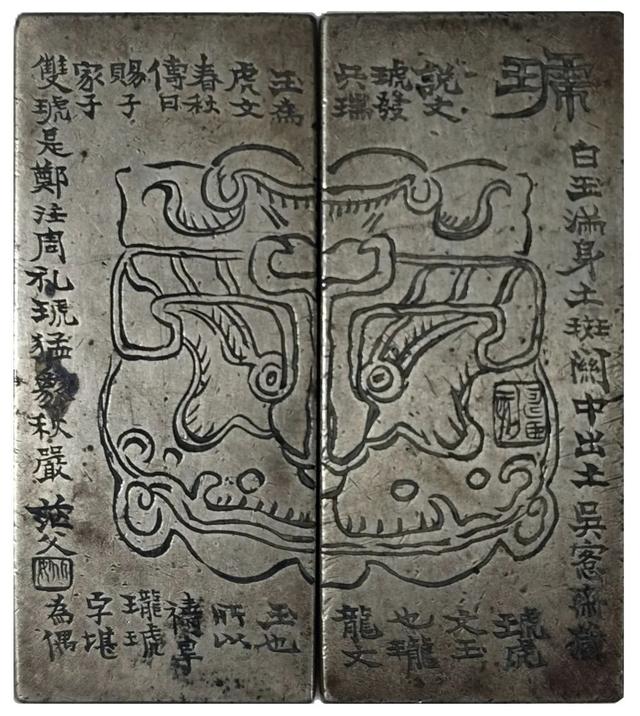 琥
白玉滿身土斑關中出土吳愙齋藏
說文
琥發
兵瑞
玉為
虎文
春秋
傳曰
賜子
家子
雙琥是鄭注周礼琥猛象秋嚴
茫父
琥虎
文玉
也瓏
龍文
玉也
所以
禱旱
瓏琥
字堪
為偶